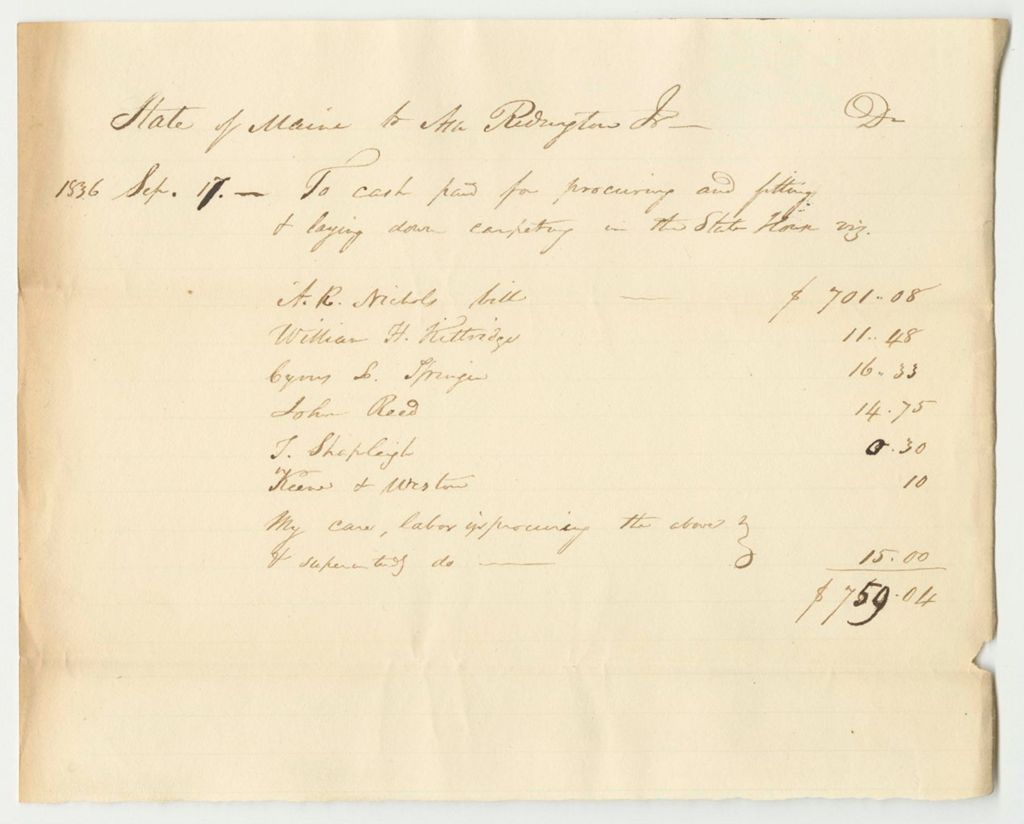 State of Maine to Asa Redington Jr — Dr
1836 Sep. 17. — To cash paid for procuring and fitting
& laying down carpeting in the State House viz.
A. R. Nichols bill — $ 701.08
William H. Kittridge 11.48
Cyrus S. Springer 16.33
John Reed 14.75
T. Shapleigh 0.30
Keene & Weston 10
My care, labor in procuring the above }
& superintdg do — 15.00
$ 759.04